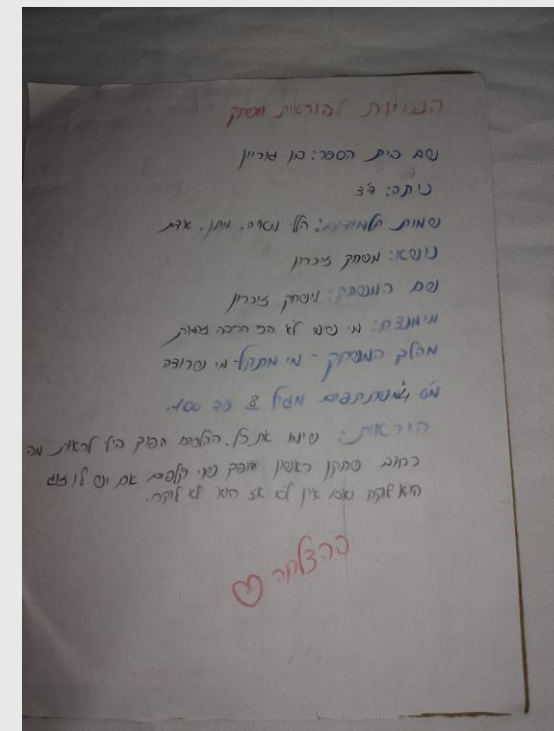 הנחיות להוראות משחק
שם בית הספר: בן גוריון
כיתה: ד'3
שמות תלמידות: הלל, מאיה, מיתן, אדת
נושא: משחק זיכרון
שם המשחק: משחק זיכרון
מי מנצח: מי שעם לא הכי הרבה זוגות
מהלך המשחק - מי מתחיל - מי שרוצה
מס משתתפים מגיל 8 עד 100.
הוראות: שימו את כל הקלפים הפוך בלי לראות מה
כתוב שחקן ראשון הופך שני קלפים אם יש לו זוג
הוא לוקח ואם אין לא אז הוא לא לוקח.
בהצלחה